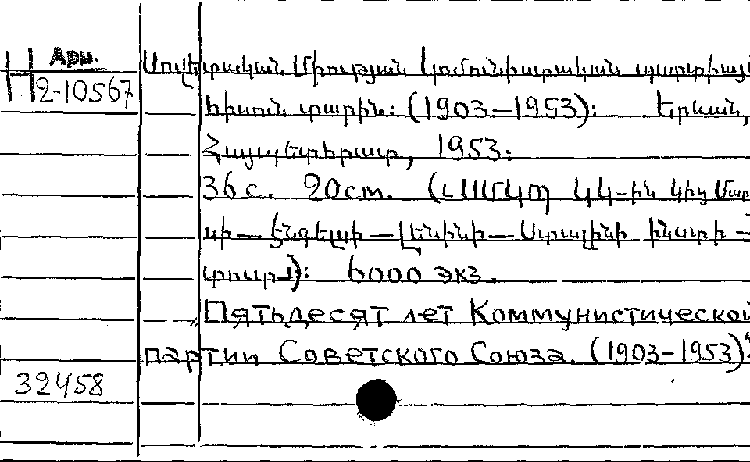 Арм.
Н2-10567
Սովետական Միության կոմունիստական պարտիայի
հիսուն տարին: (1903—1953): Երևան,
Հայպետհրատ, 1953.
36 с. 20 см. (ՍՄԿՊ ԿԿ-ին կից Մար
սի—Էնգելսի—Լենինի—Ստալինի ինստի-
տուտ): 6000 экз.
Пятьдесят лет Коммунистической
партии Советского Союза. (1903-1953)
32458